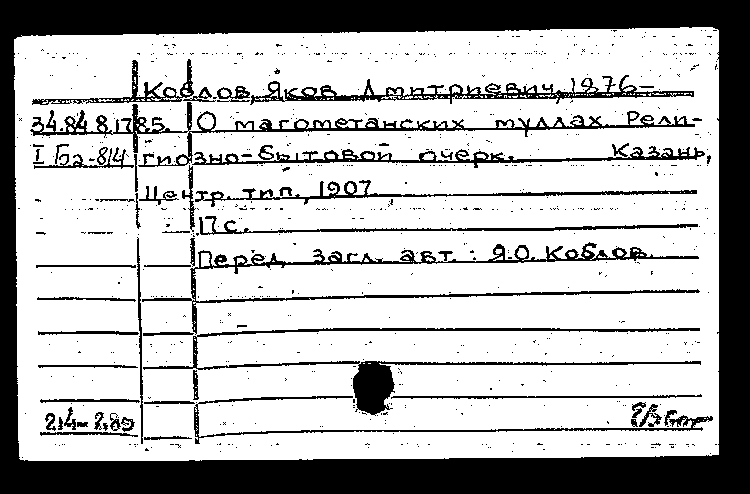 Коблов, Яков Дмитриевич, 1876-
34.84.8.1785. О магометанских муллах. Рели-
I Ба-814 гиозно-бытовой очерк. Казань,
Центр. тип., 1907
17 с.
Перед загл. авт.: Я.О. Коблов.